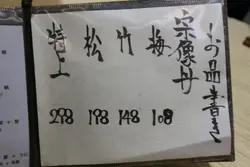 お品書き
宗像丼
梅 108
竹 148
松 198
特上 298